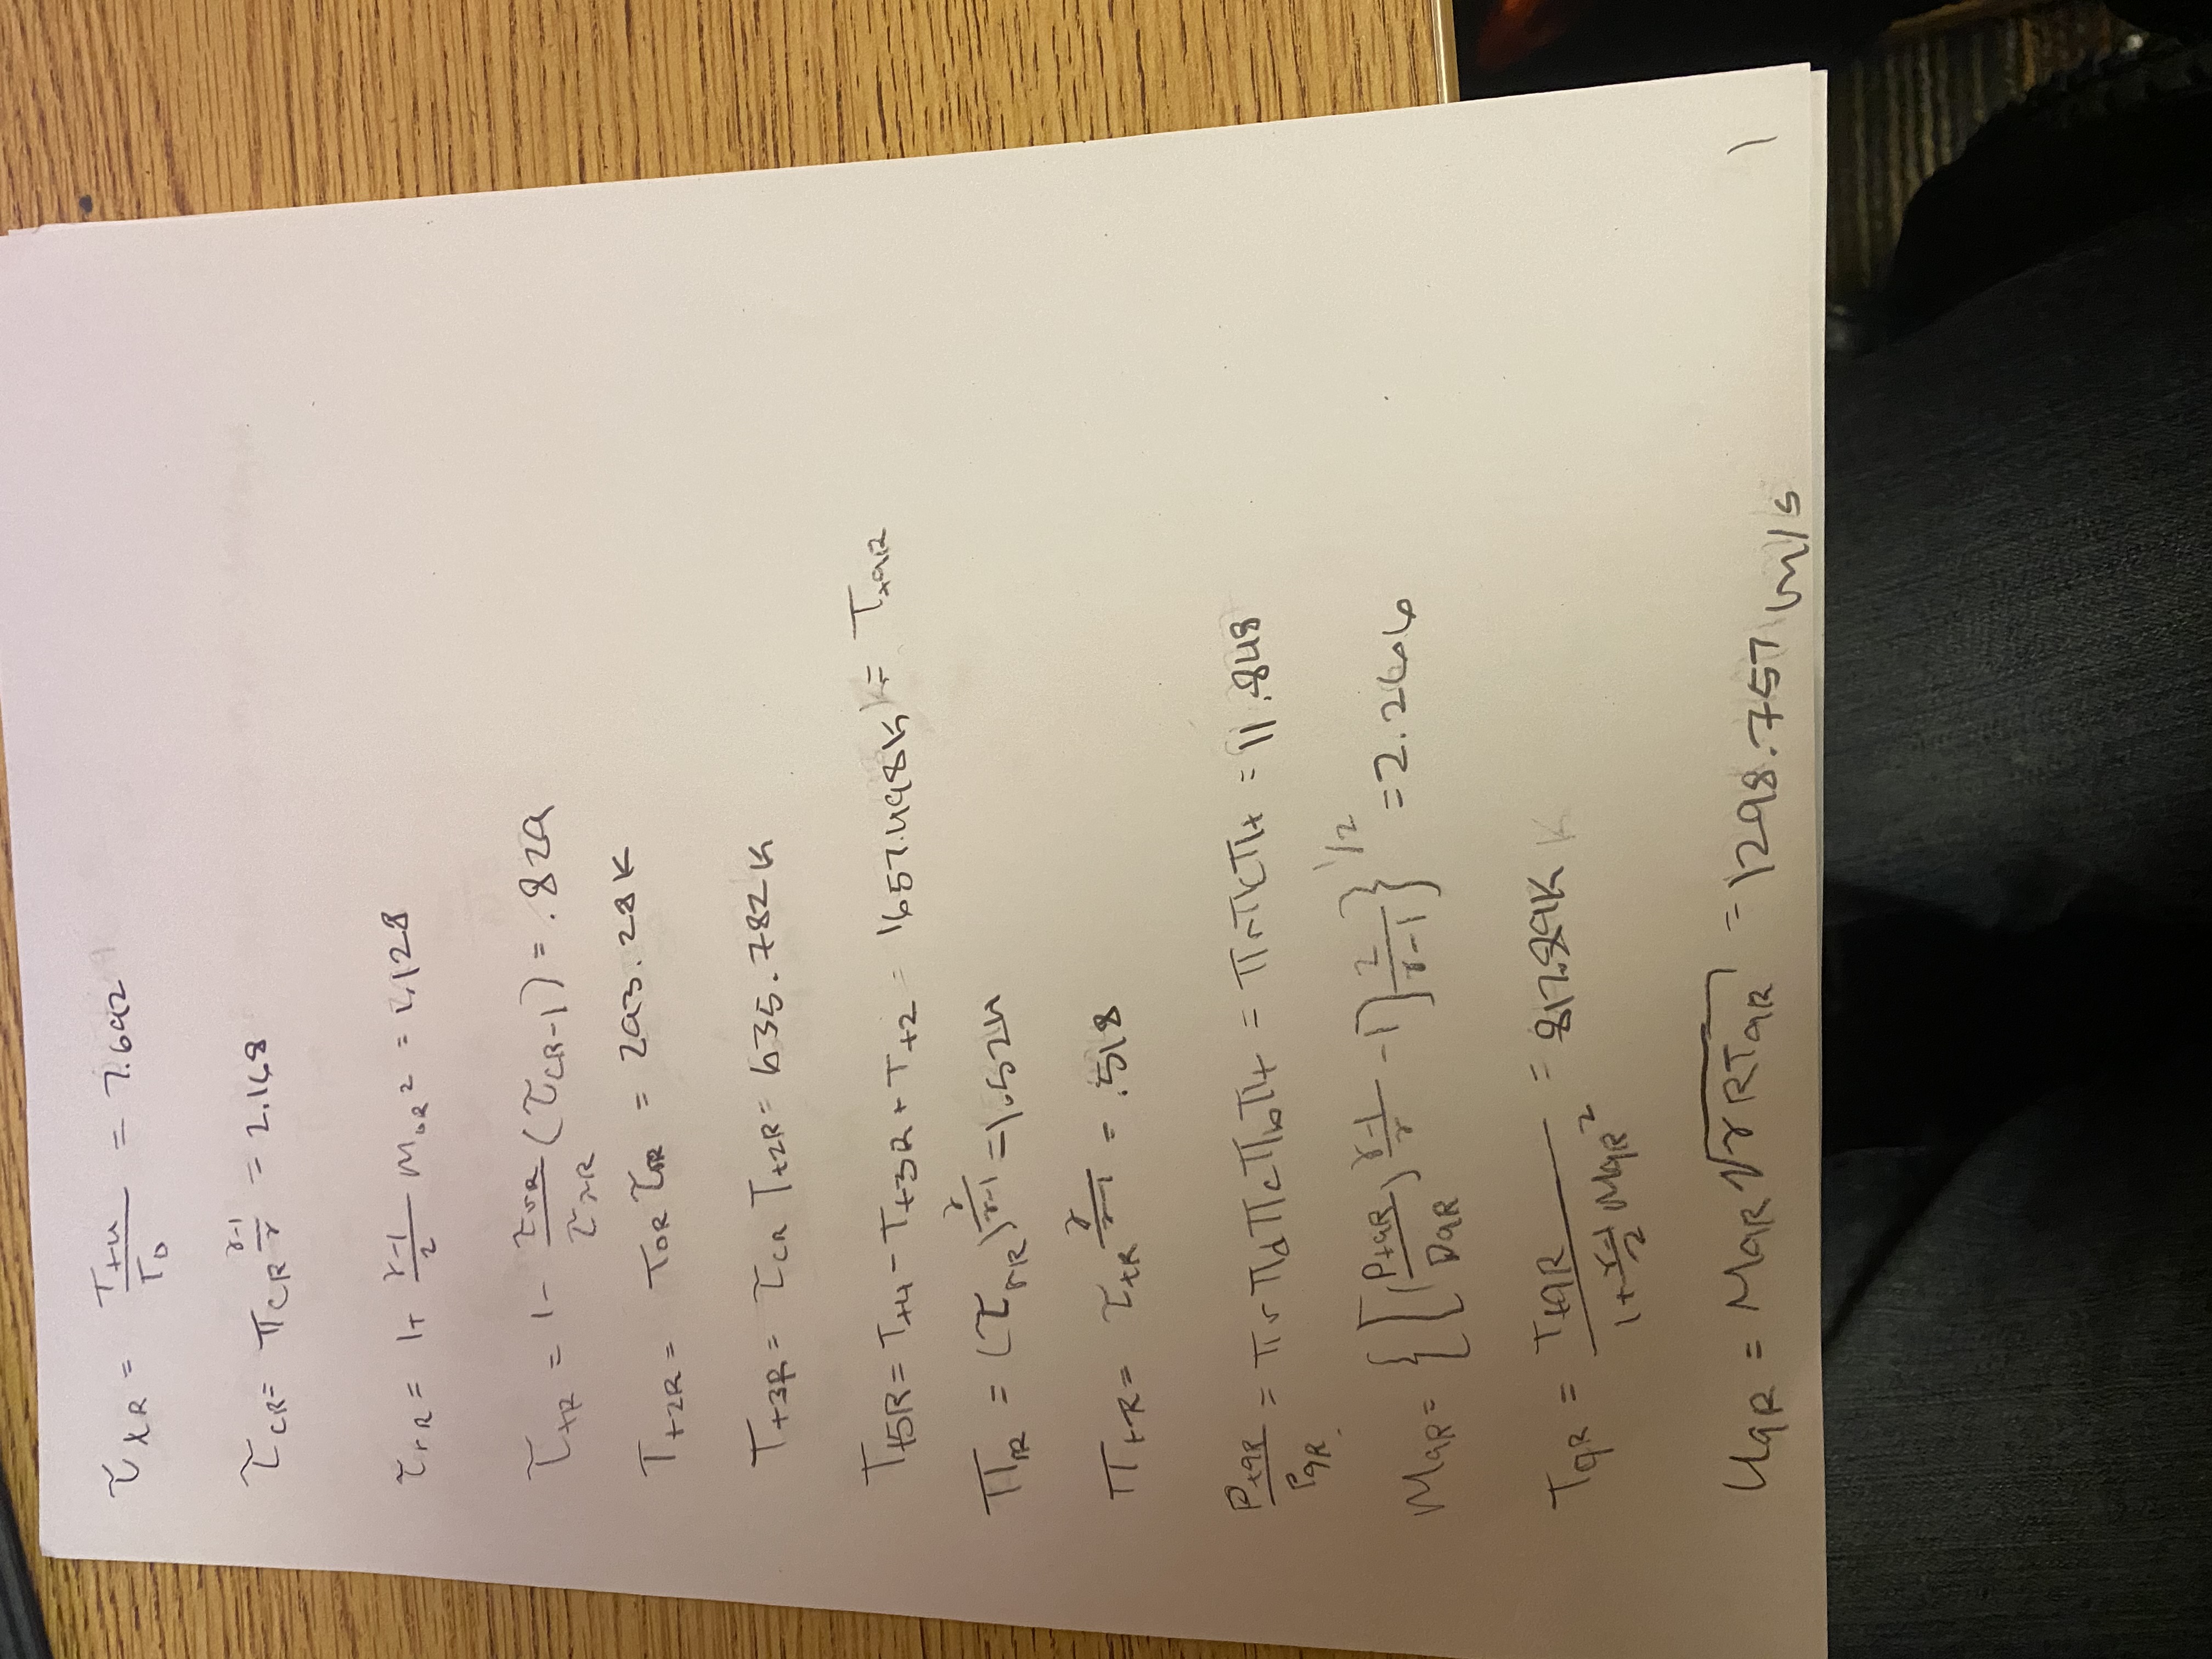 τ_λR = T_t4 / T_0 = 7.692
τ_cR = π_cR^((γ-1)/γ) = 2.168
τ_rR = 1 + (γ-1)/2 M_0R² = 1.128
τ_tR = 1 - τ_rR/τ_λR (τ_cR - 1) = .829
T_t2R = T_0R τ_rR = 293.28 K
T_t3R = τ_cR T_t2R = 635.782 K
T_t5R = T_t4 - T_t3R + T_t2 = 1657.498 K = T_t9R
π_rR = (τ_rR)^(γ/(γ-1)) = 1.524
π_tR = τ_tR^(γ/(γ-1)) = .518
P_t9R / P_9R = π_r π_d π_c π_b π_t = π_r π_c π_t = 11.848
M_9R = {[(P_t9R / P_9R)^((γ-1)/γ) - 1] 2/(γ-1)}^(1/2) = 2.266
T_9R = T_t9R / (1 + (γ-1)/2 M_9R²) = 817.89 K K
U_9R = M_9R √(γRT_9R) = 1298.757 m/s
1